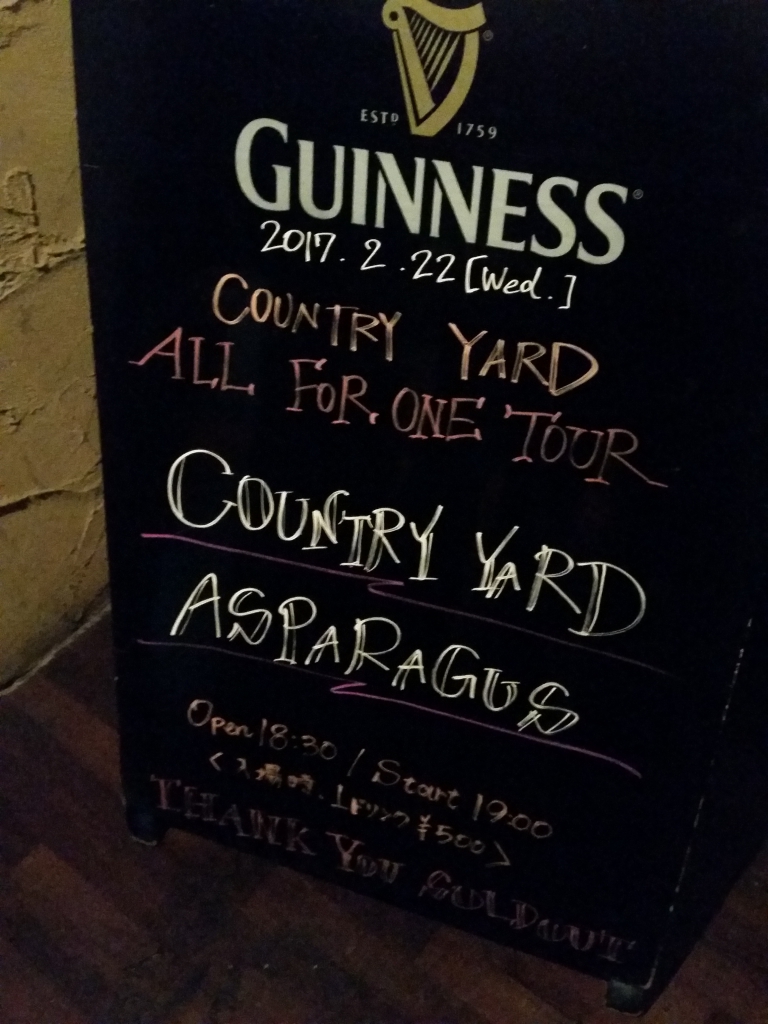 ESTD 1759
GUINNESS
2017.2.22[Wed.]
COUNTRY YARD
ALL FOR ONE TOUR
COUNTRY YARD
ASPARAGUS
Open 18:30 / Start 19:00
<入場時、1ドリンク¥500>
THANK YOU SOLD OUT